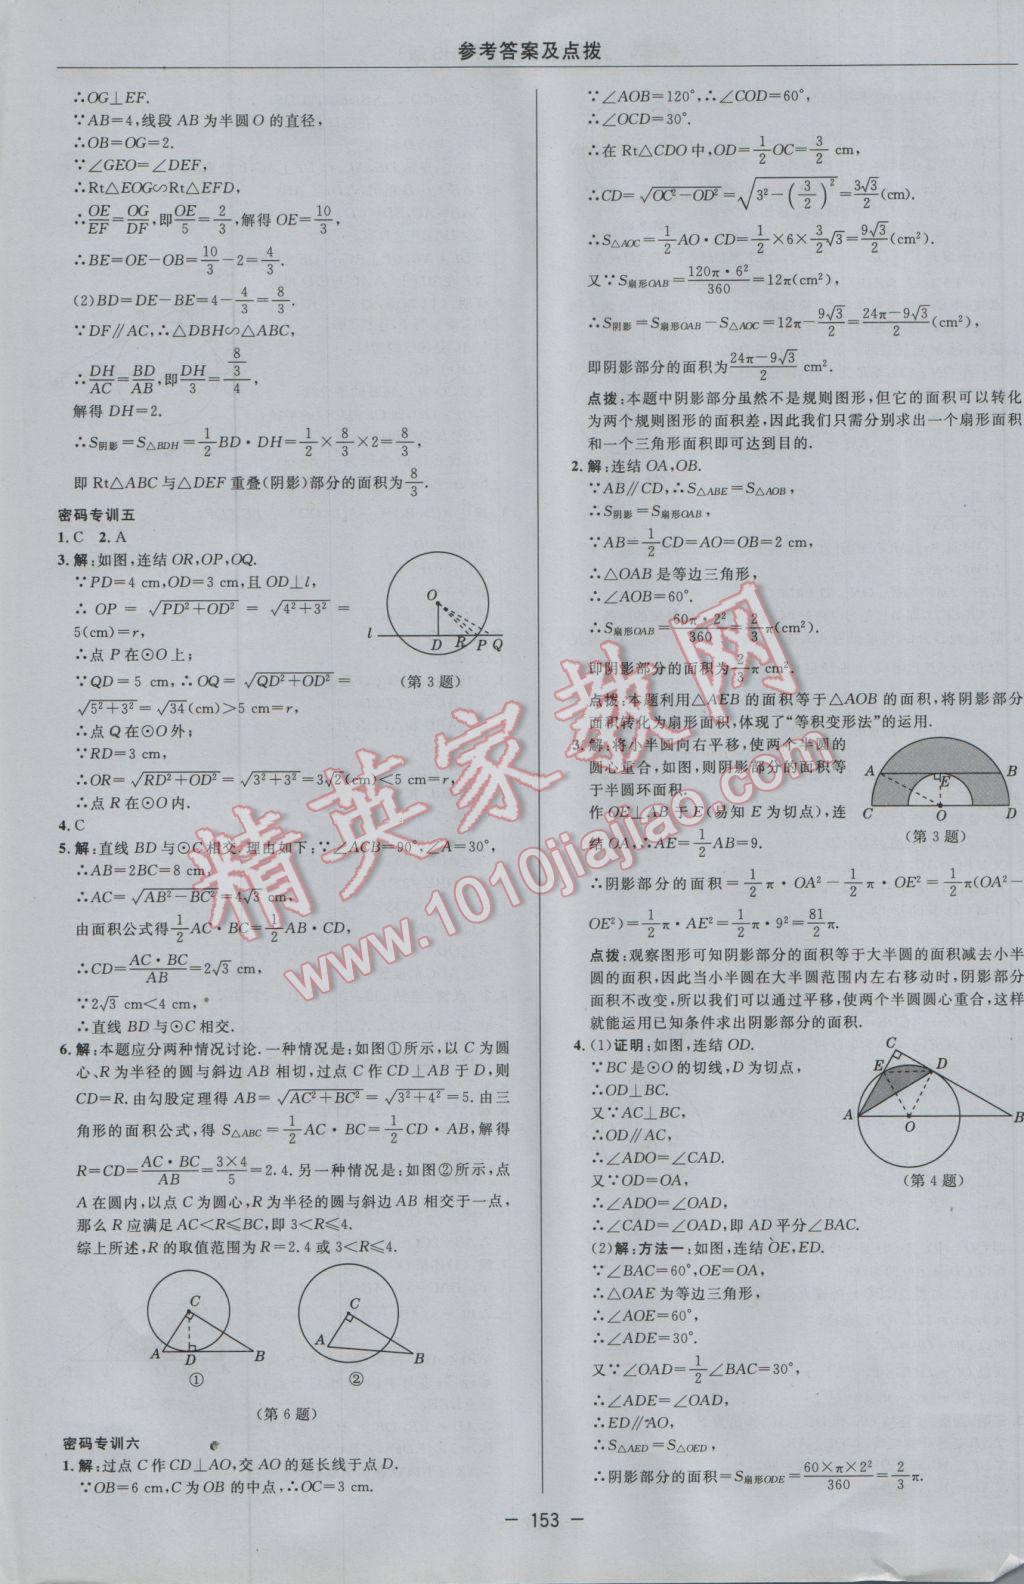 参考答案及点拨
∴OG⊥EF.
∵AB=4,线段 AB 为半圆 O 的直径,
∴OB=OG=2.
∵∠GEO=∠DEF,
∴Rt△EOG∽Rt△EFD,
∴OE/EF=OG/DF,即OE/5=2/3,解得 OE=10/3,
∴BE=OE−OB=10/3−2=4/3.
(2)BD=DE−BE=4−4/3=8/3.
∵DF∥AC,∴△DBH∽△ABC,
∴DH/AC=BD/AB,即DH/3=(8/3)/4,
解得 DH=2.
∴S阴影=S△BDH=1/2BD·DH=1/2×8/3×2=8/3,
即 Rt△ABC 与△DEF 重叠(阴影)部分的面积为8/3.
密码专训五
1.C 2.A
3.解:如图,连结 OR,OP,OQ.
∵PD=4 cm,OD=3 cm,且 OD⊥l,
∴ OP = √(PD²+OD²) = √(4²+3²) =
5(cm)=r,
∴点 P 在⊙O 上;
∵QD=5 cm,∴OQ=√(QD²+OD²)=
√(5²+3²)=√34(cm)>5 cm=r,
∴点 Q 在⊙O 外;
∵RD=3 cm,
∴OR=√(RD²+OD²)=√(3²+3²)=3√2(cm)<5 cm=r,
∴点 R 在⊙O 内.
O
l D R P Q
(第 3 题)
4.C
5.解:直线 BD 与⊙C 相交.理由如下:∵∠ACB=90°,∠A=30°,
∴AB=2BC=8 cm,
∴AC=√(AB²−BC²)=4√3 cm,
由面积公式得1/2AC·BC=1/2AB·CD,
∴CD=AC·BC/AB=2√3 cm,
∵2√3 cm<4 cm,
∴直线 BD 与⊙C 相交.
6.解:本题应分两种情况讨论.一种情况是:如图①所示,以 C 为圆
心、R 为半径的圆与斜边 AB 相切,过点 C 作 CD⊥AB 于 D,则
CD=R.由勾股定理得 AB=√(AC²+BC²)=√(3²+4²)=5.由三
角形的面积公式,得 S△ABC=1/2AC·BC=1/2CD·AB,解得
R=CD=AC·BC/AB=3×4/5=2.4.另一种情况是:如图②所示,点
A 在圆内,以点 C 为圆心,R 为半径的圆与斜边 AB 相交于一点,
那么 R 应满足 AC<R≤BC,即 3<R≤4.
综上所述,R 的取值范围为 R=2.4 或 3<R≤4.
C
A D B
①
C
A B
②
(第 6 题)
密码专训六
1.解:过点 C 作 CD⊥AO,交 AO 的延长线于点 D.
∵OB=6 cm,C 为 OB 的中点,∴OC=3 cm.
∵∠AOB=120°,∴∠COD=60°,
∴∠OCD=30°.
∴在 Rt△CDO 中,OD=1/2OC=3/2 cm,
∴CD=√(OC²−OD²)=√(3²−(3/2)²)=3√3/2(cm).
∴S△AOC=1/2AO·CD=1/2×6×3/2√3=9√3/2(cm²).
又∵S扇形OAB=120π·6²/360=12π(cm²),
∴S阴影=S扇形OAB−S△AOC=12π−9√3/2=(24π−9√3)/2(cm²),
即阴影部分的面积为(24π−9√3)/2 cm².
点拨:本题中阴影部分虽然不是规则图形,但它的面积可以转化
为两个规则图形的面积差,因此我们只需分别求出一个扇形面积
和一个三角形面积即可达到目的.
2.解:连结 OA,OB.
∵AB∥CD,∴S△ABE=S△AOB,
∴S阴影=S扇形OAB,
∵AB=1/2CD=AO=OB=2 cm,
∴△OAB 是等边三角形,
∴∠AOB=60°.
∴S扇形OAB=60π·2²/360=2/3π(cm²).
即阴影部分的面积为2/3π cm².
点拨:本题利用△AEB 的面积等于△AOB 的面积,将阴影部分
面积转化为扇形面积,体现了“等积变形法”的运用.
3.解:将小半圆向右平移,使两个半圆的
圆心重合,如图,则阴影部分的面积等
于半圆环面积.
作 OE⊥AB 于 E(易知 E 为切点),连
结 OA,∴AE=1/2AB=9.
A B
E
C O D
(第 3 题)
∴阴影部分的面积=1/2π·OA²−1/2π·OE²=1/2π(OA²−
OE²)=1/2π·AE²=1/2π·9²=81/2π.
点拨:观察图形可知阴影部分的面积等于大半圆的面积减去小半
圆的面积,因此当小半圆在大半圆范围内左右移动时,阴影部分
面积不改变,所以我们可以通过平移,使两个半圆圆心重合,这样
就能运用已知条件求出阴影部分的面积.
4.(1)证明:如图,连结 OD.
∵BC 是⊙O 的切线,D 为切点,
∴OD⊥BC.
又∵AC⊥BC,
∴OD∥AC,
∴∠ADO=∠CAD.
又∵OD=OA,
∴∠ADO=∠OAD,
∴∠CAD=∠OAD,即 AD 平分∠BAC.
C
E D
A O B
(第 4 题)
(2)解:方法一:如图,连结 OE,ED.
∵∠BAC=60°,OE=OA,
∴△OAE 为等边三角形,
∴∠AOE=60°,
∴∠ADE=30°.
又∵∠OAD=1/2∠BAC=30°,
∴∠ADE=∠OAD,
∴ED∥AO,
∴S△AED=S△OED,
∴阴影部分的面积=S扇形ODE=60×π×2²/360=2/3π.
精英家教网
www.1010jiajiao.com
− 153 −